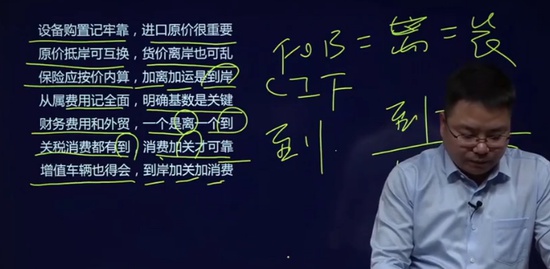 设备购置记牢靠，进口原价很重要
原价抵岸可互换，货价离岸也可乱
保险应按价内算，加离加运是到岸
从属费用记全面，明确基数是关键
财务费用和外贸，一个是离一个到
关税消费都有到，消费加关才可靠
增值车辆也得会，到岸加关加消费
FOB=离=装
CIF
到
到